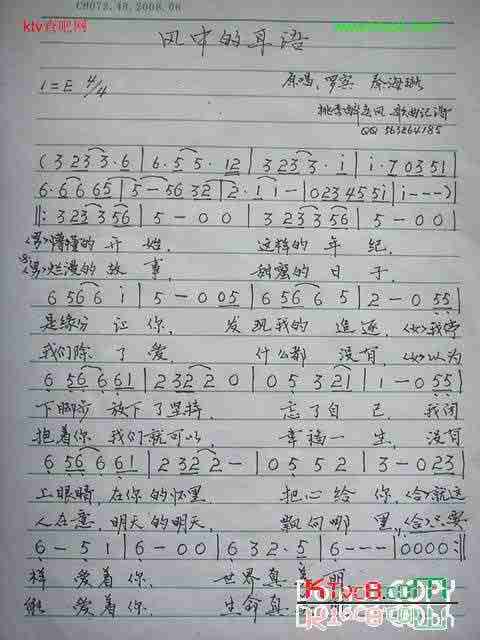 CM073.48.2008.06
ktv查吧网
风中的耳语
1=E 4/4
原唱: 罗宾 秦海璐
桃李醉春风 歌曲记谱
QQ 563264185
(3 2 3 3·6 | 6·5 5·12 | 3 2 3 3·i | i·7 0 3 5 1 |
6·6 6 6 5 | 5 - 5 6 3 2 | 2·1 1 - | 0 2 3 4 5 5 i | i - - -)
‖: 3 2 3 3 5 6 | 5 - 0 0 | 3 2 3 3 5 6 | 5 - 0 0 |
<男>懵懂的 开 始, 这样的 年 纪,
<男>烂漫的 故 事, 甜蜜的 日 子,
6 5 6 6 i | 5 - 0 0 5 | 6 5 6 6 5 | 2 - 0 5 5 |
是缘份 让 你, 发 现我的 追 逐, <女>我停
我们除 了 爱, 什么都 没 有, <女>以为
6 5 6 6 6 6 1 | 2 3 2 2 0 | 0 5 3 2 1 | 1 - 0 5 5 |
下脚步 放下了坚持, 忘了自 己, 我闭
抱着你 我们就可以, 幸福一 生, 没有
6 5 6 6 6 1 | 2 3 2 2 - | 0 5 5 2 | 3 - 0 2 3 |
上眼睛, 在你的怀里, 把心给 你, <合>就这
人在意, 明天的明天, 飘向哪 里, <合>只要
6 - 5 1 | 6 - 0 0 | 6 3 2·5 | 6 - - - | 0 0 0 0 :‖
样 爱着你, 世界真
能 爱着你, 生命真
Ktvc8.com
COPY